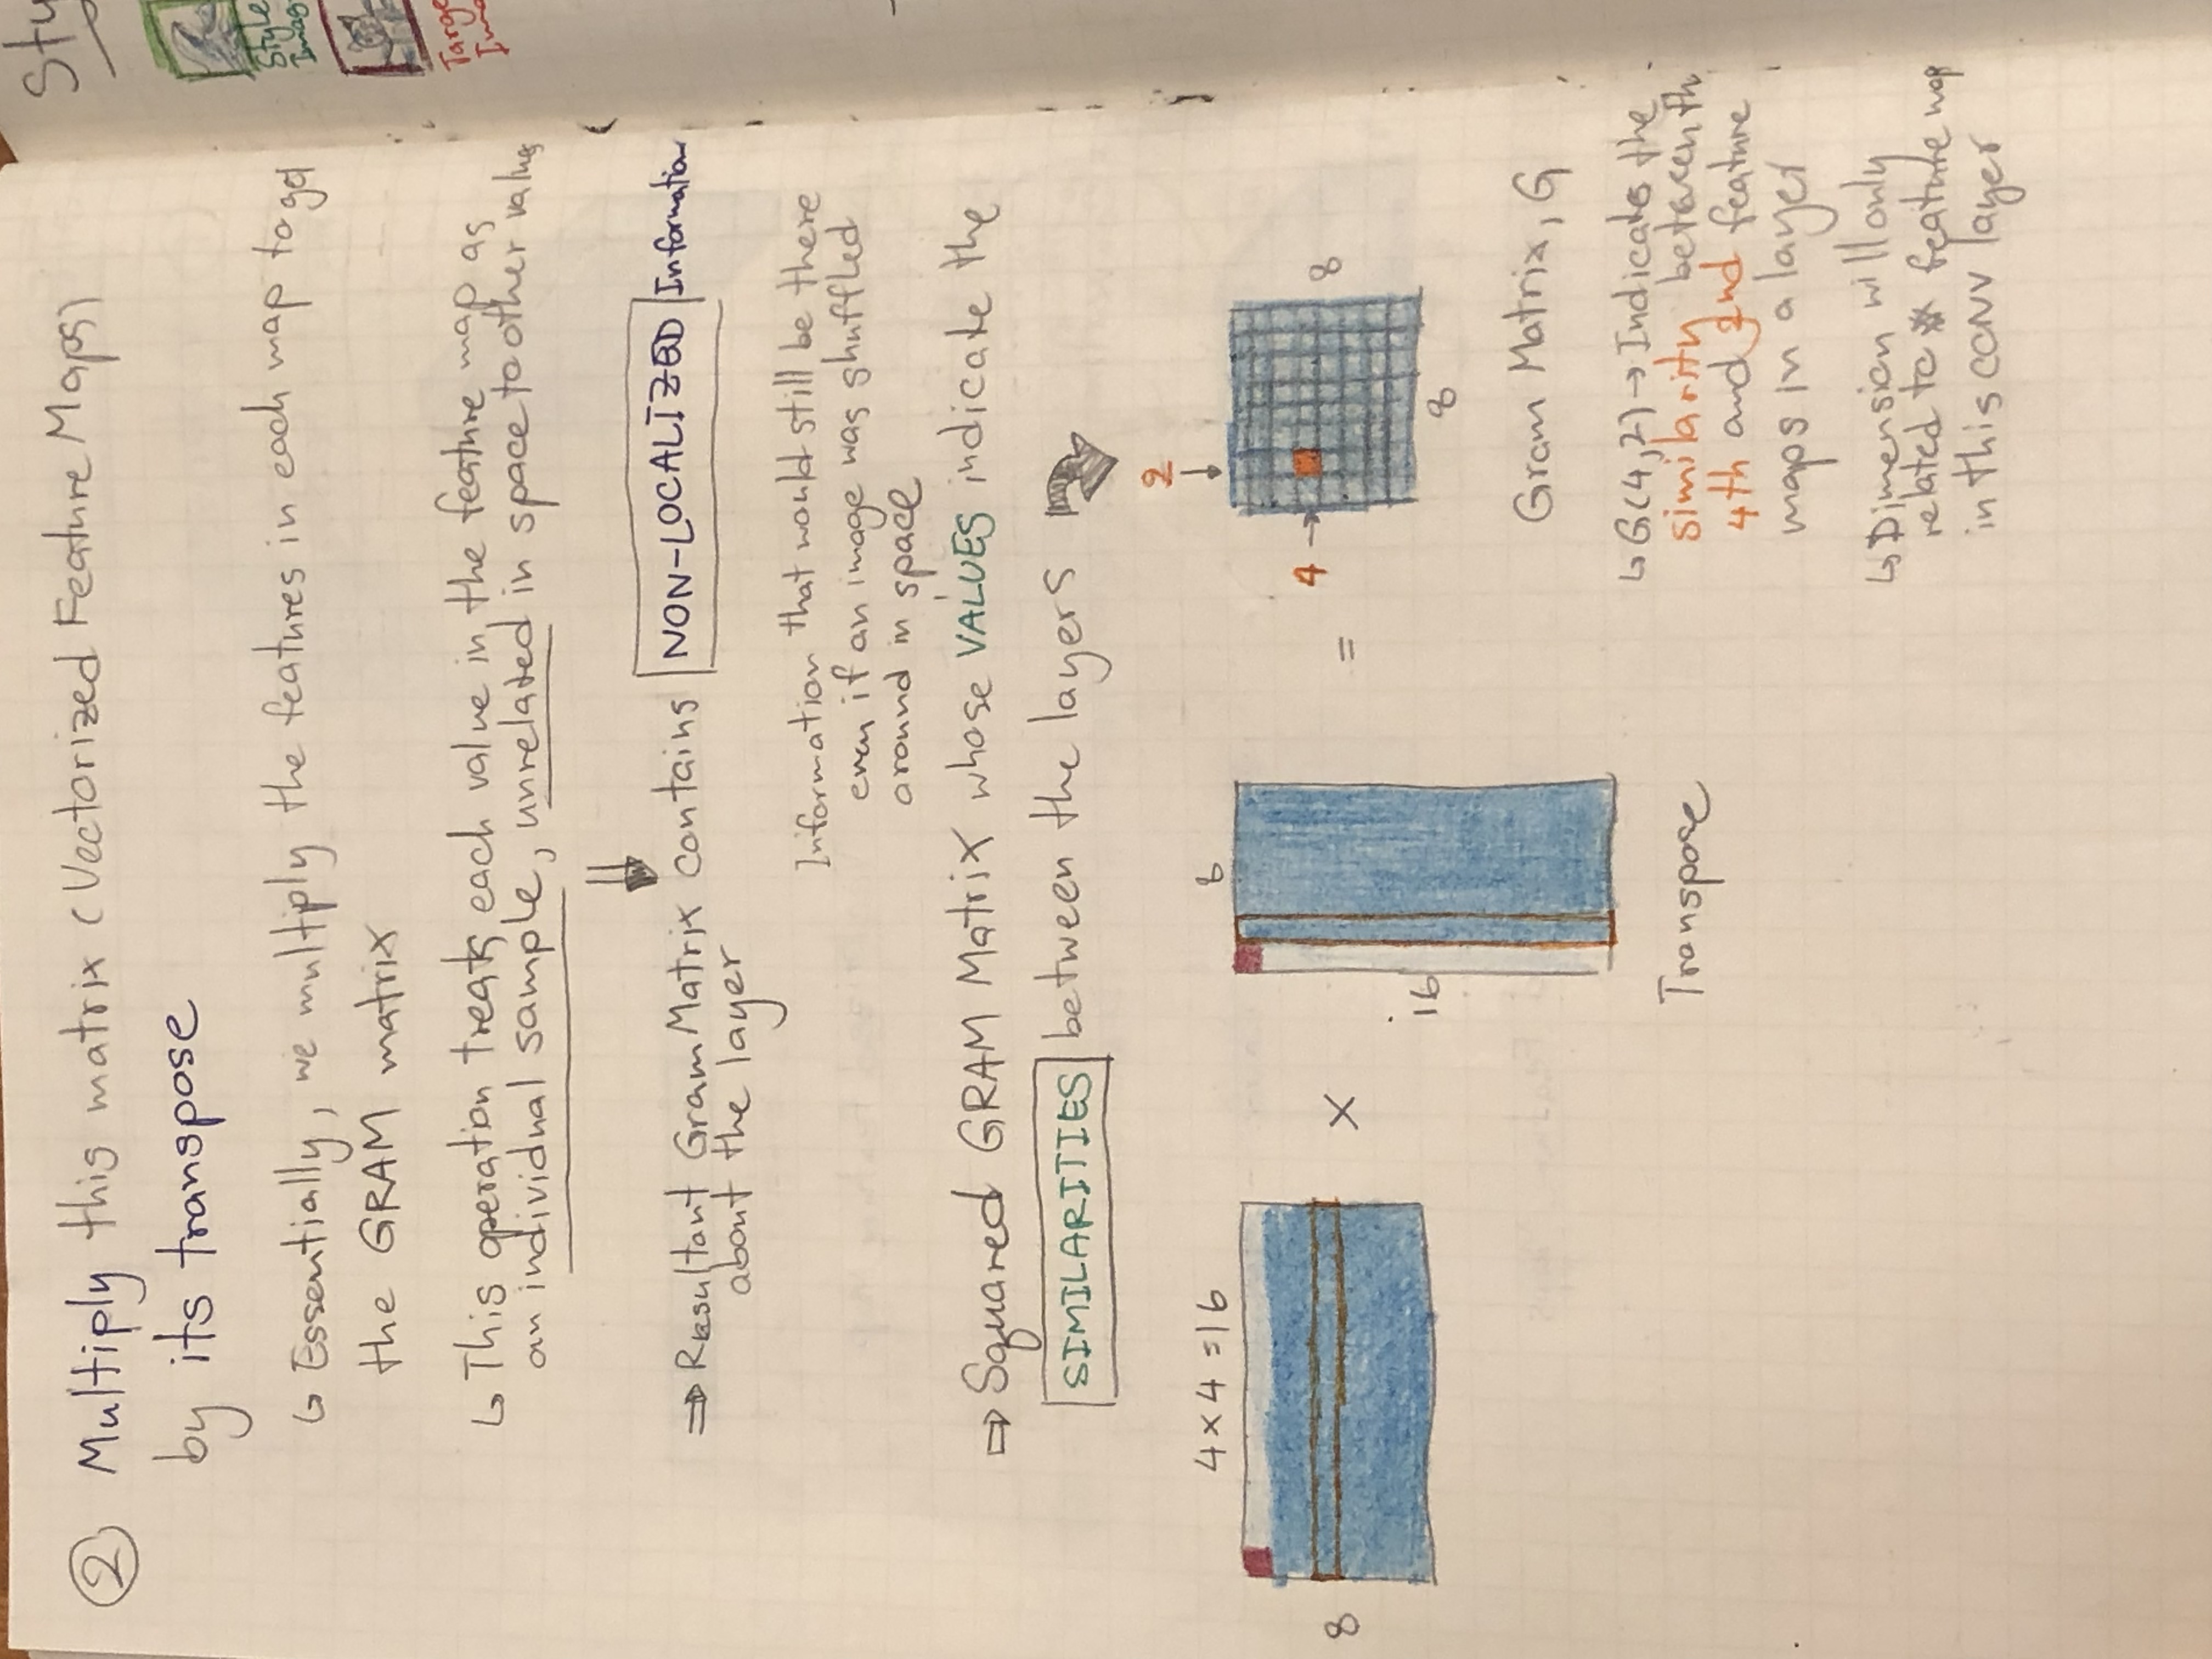 ② Multiply this matrix (Vectorized Feature Maps)
by its transpose
↳ Essentially, we multiply the features in each map to get
the GRAM matrix
↳ This operation treats each value in the feature map as
an individual sample, unrelated in space to other values
⇒ Resultant Gram Matrix contains NON-LOCALIZED Information
about the layer
Information that would still be there
even if an image was shuffled
around in space
⇒ Squared GRAM Matrix whose VALUES indicate the
SIMILARITIES between the layers
2
4 × 4 = 16
8
8
×
16
=
4 →
8
8
Transpose
Gram Matrix, G
↳ G(4,2) → Indicates the
similarity between th
4th and 2nd feature
maps in a layer
↳ Dimension will only
related to # feature map
in this CONV layer
Stu
Style
Imag
Targe
Ima